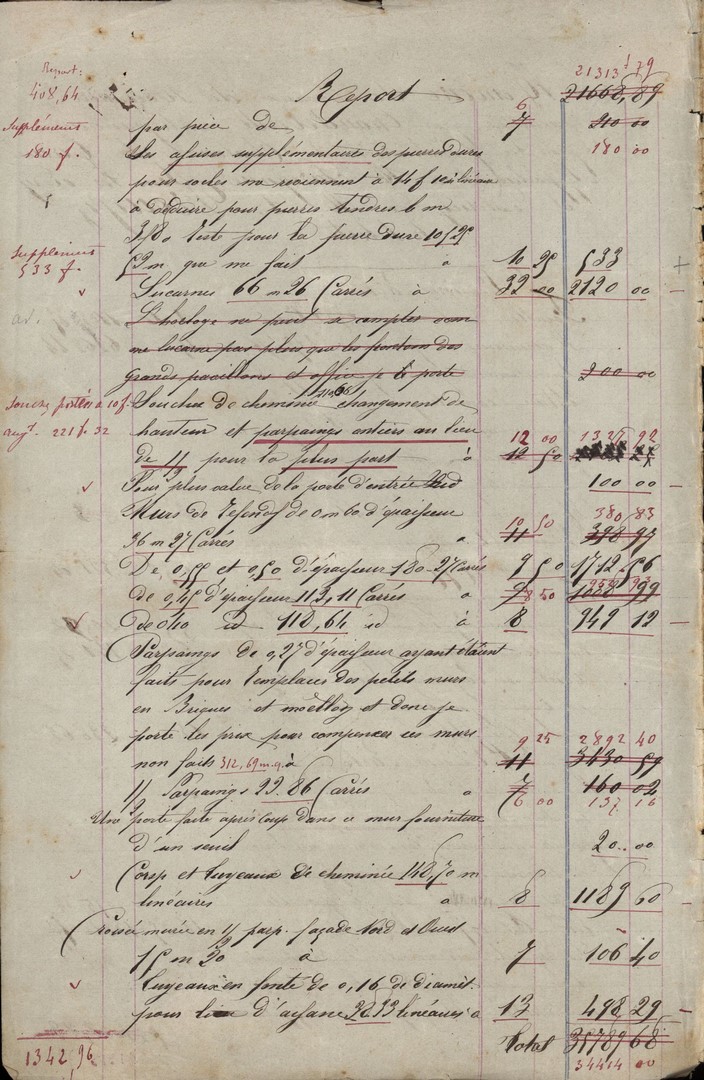 Report:
408,64
Report
21313,79
21668,89
par pièce de 6 7 40 00
Supplément
180 f.
Les assises supplémentaires des pierres dures 180 00
pour socles me reviennent à 14 f 10 le linéaire
à déduire pour pierres tendres 6 m
3,80 reste pour la pierre dure 10,25
Supplément
533 f.
52 m que me fait à 10 25 533
Lucarnes 66 m 26 Carrés à 32 00 2120 00
L'horloge ne peut se compter comme
une lucarne pas plus que les frontons des
grands pavillons et office je le porte 200 00
Souches portées à 10 f.
augt. 221 f. 32
Souches de cheminée 110,66 changement de
hauteur et parpaings entiers au lieu 12 00 1327 92
de 1/2 pour la plus part à 12 50
Pour plus value de la porte d'entrée Sud 100 00
Murs de refends de 0 m 60 d'épaisseur 380 83
36 m 27 Carrés à 10 50 11 398 97
De 0,55 et 0,50 d'épaisseur 180-27 Carrés 9 50 1712 56
de 0,45 d'épaisseur 112,11 Carrés à 9 8 50
de 0,40 id 118,64 id à 8 949 12
Parpaings de 0,27 d'épaisseur ayant étaient
faits pour remplacer des petits murs
en Briques et moëllons et dont je
porte les prix pour compenser ces murs 9 25 2892 40
non faits 312,69 m.q. à 11
1/2 Parpaings 22.86 Carrés à 7 160 02
6 00 137 16
Une porte faite après coup dans ce mur fourniture
d'un seuil 20.00
Corps et tuyeaux de cheminée 148,70 m
linéaires à 8 1189 60
Croisée murée en 1/2 parp. façade Nord et Ouest
15 m 20 à 7 106 40
Tuyeaux en fonte de 0,16 de diamèt.
pour lieu d'aisance 38 33 linéaires à 13 498,29
Total 35789 68
34414 00
1342,96